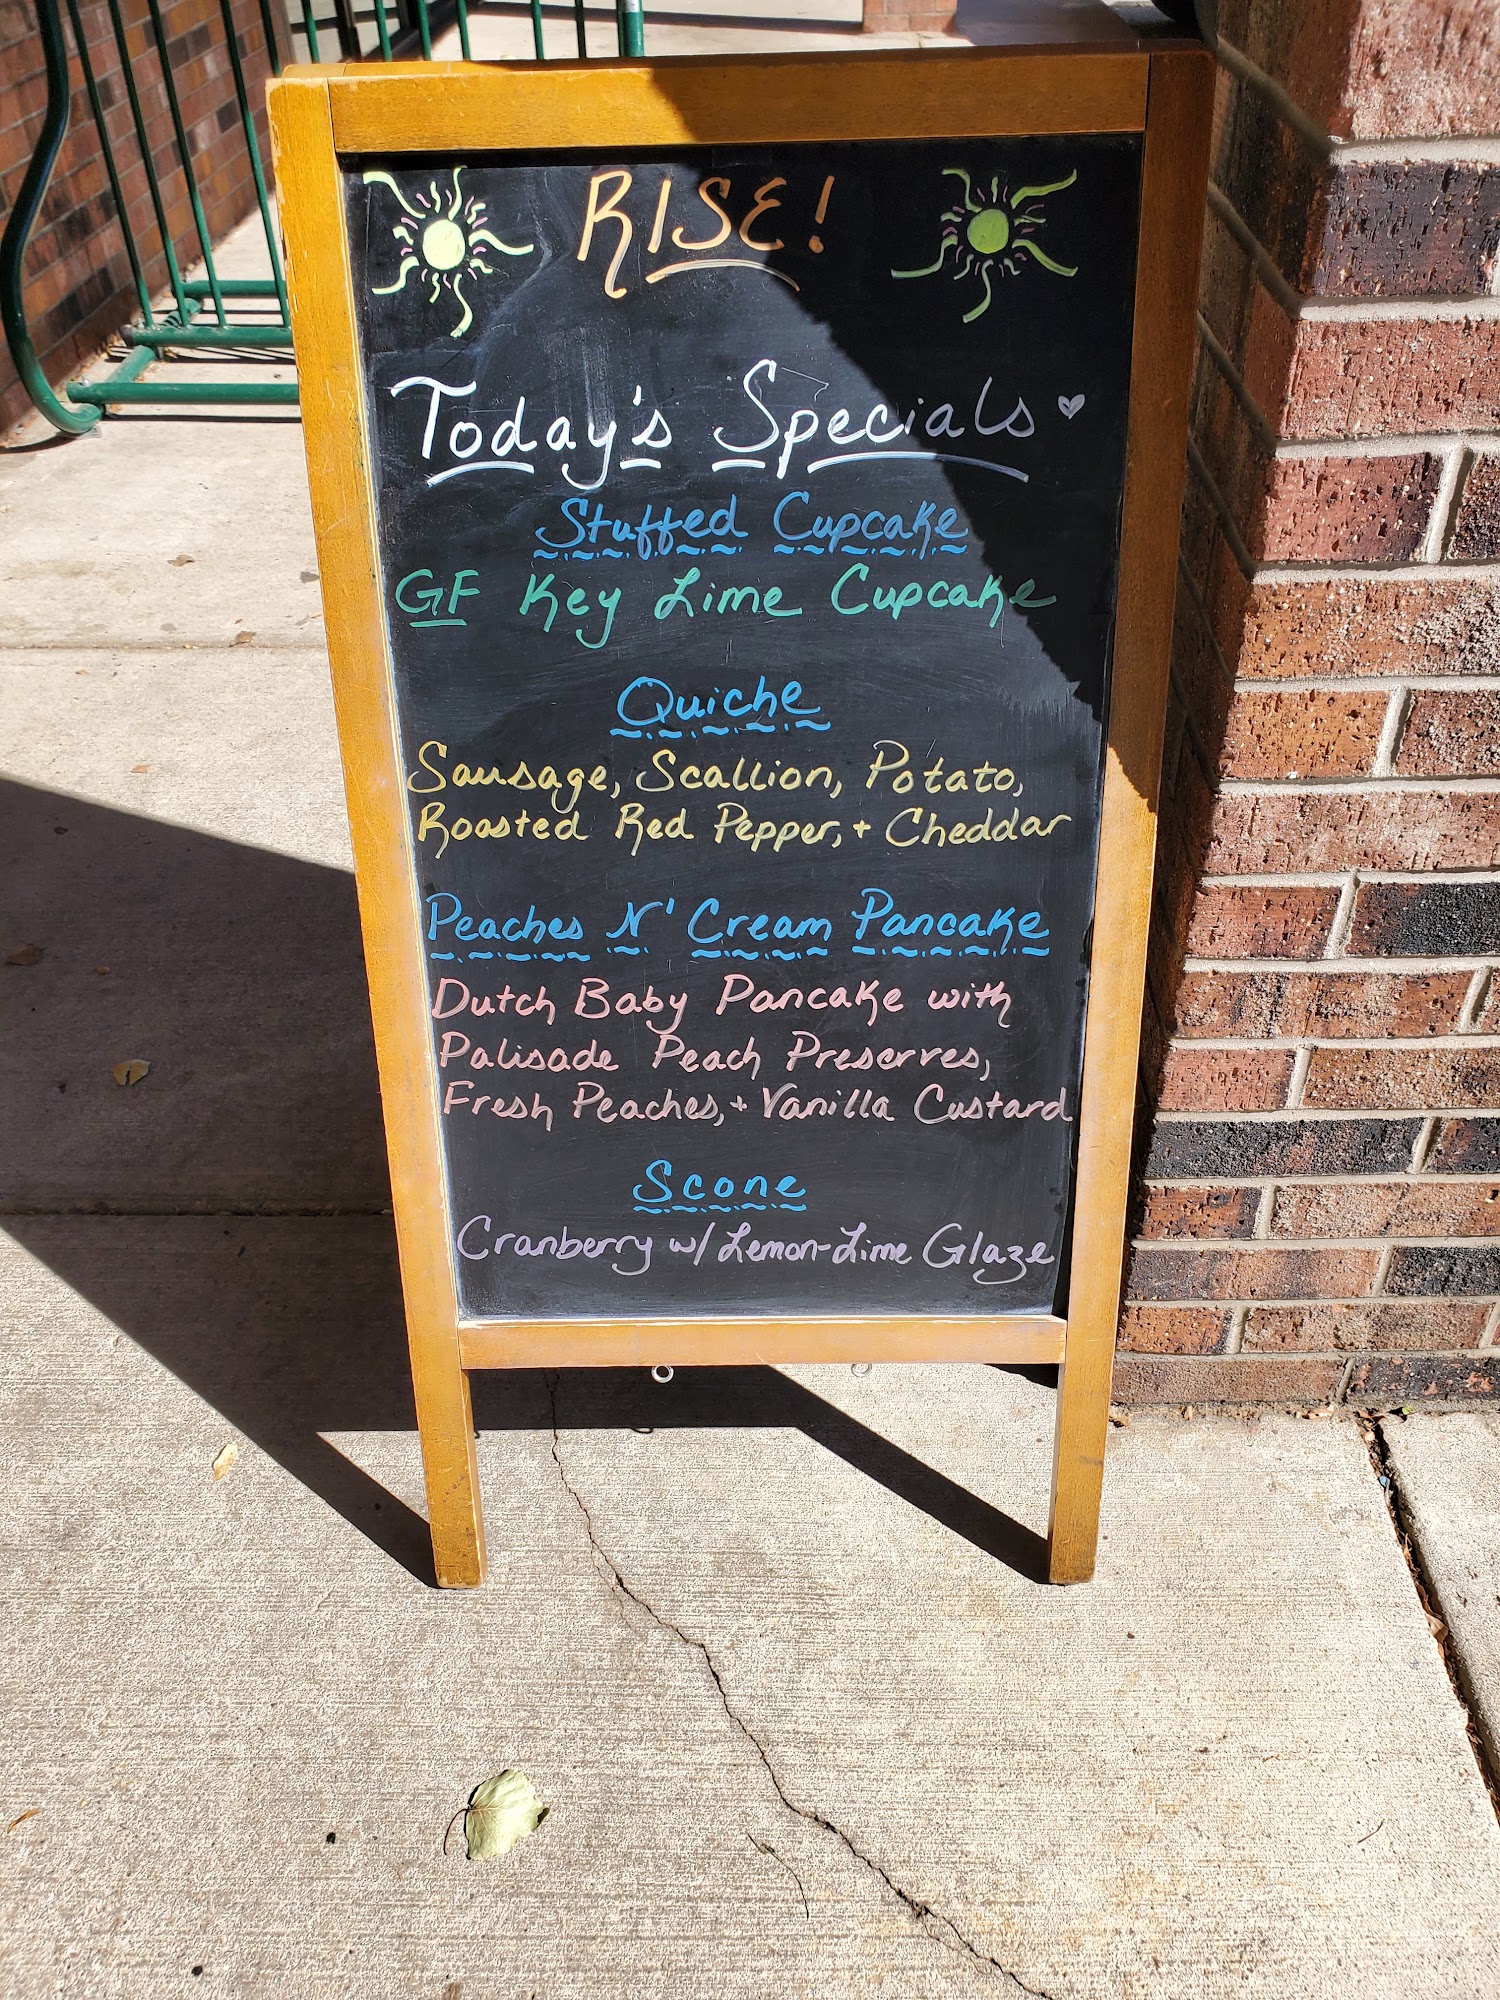 RISE!
Today's Specials
Stuffed Cupcake
GF Key Lime Cupcake
Quiche
Sausage, Scallion, Potato,
Roasted Red Pepper, + Cheddar
Peaches N' Cream Pancake
Dutch Baby Pancake with
Palisade Peach Preserves,
Fresh Peaches, + Vanilla Custard
Scone
Cranberry w/ Lemon-Lime Glaze